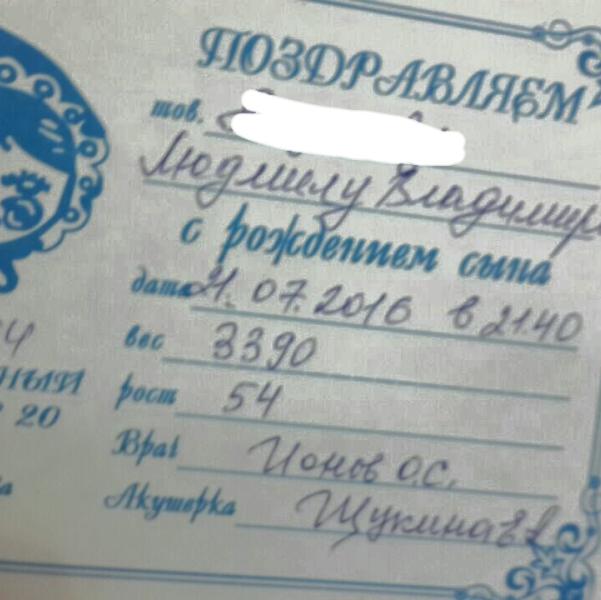 ПОЗДРАВЛЯЕМ
тов.
Людмилу Владимир
с рождением сына
дата 21.07.2016 в 21.40
вес 3390
рост 54
Врач Ионов О.С.
Акушерка Щукина
НЫЙ
20